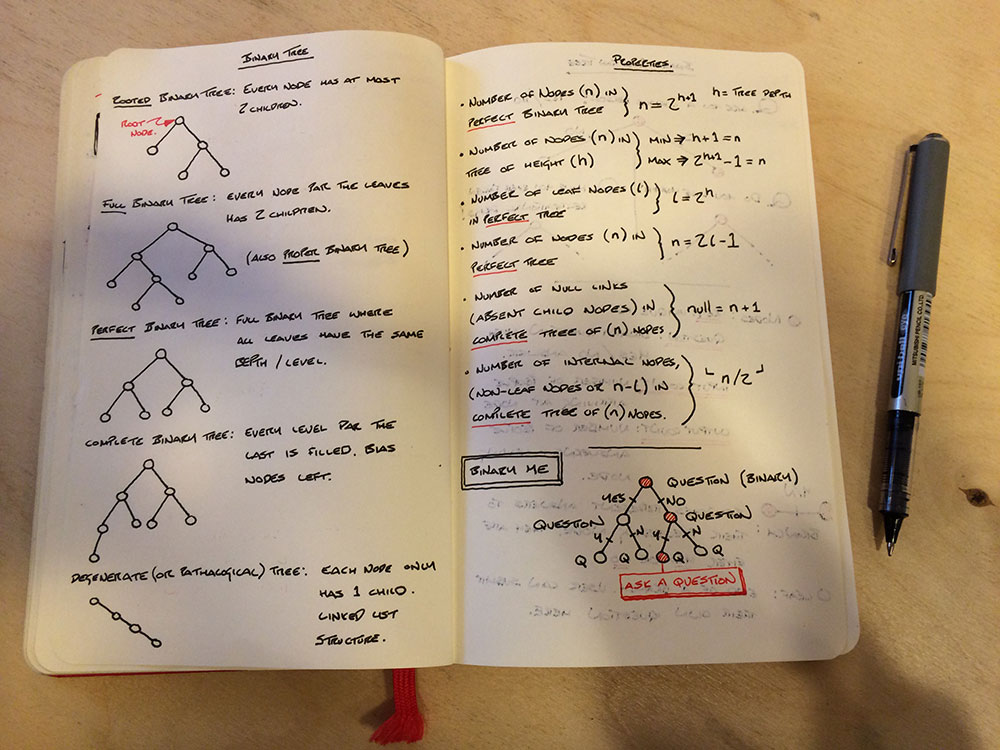 BINARY TREE
ROOTED BINARY TREE: EVERY NODE HAS AT MOST
2 CHILDREN.
ROOT
NODE.
FULL BINARY TREE: EVERY NODE PAR THE LEAVES
HAS 2 CHILDREN.
(ALSO PROPER BINARY TREE)
PERFECT BINARY TREE: FULL BINARY TREE WHERE
ALL LEAVES HAVE THE SAME
DEPTH / LEVEL.
COMPLETE BINARY TREE: EVERY LEVEL PAR THE
LAST IS FILLED. BIAS
NODES LEFT.
DEGENERATE (OR PATHALOGICAL) TREE: EACH NODE ONLY
HAS 1 CHILD.
LINKED LIST
STRUCTURE.
PROPERTIES
• NUMBER OF NODES (n) IN
PERFECT BINARY TREE } n = 2^{h+1} h = TREE DEPTH
• NUMBER OF NODES (n) IN
TREE OF HEIGHT (h) } MIN ⇒ h+1 = n
MAX ⇒ 2^{h+1} - 1 = n
• NUMBER OF LEAF NODES (l)
IN PERFECT TREE } l = 2^h
• NUMBER OF NODES (n) IN
PERFECT TREE } n = 2l - 1
• NUMBER OF NULL LINKS
(ABSENT CHILD NODES) IN
COMPLETE TREE OF (n) NODES. } null = n + 1
• NUMBER OF INTERNAL NODES,
(NON-LEAF NODES OR n-l) IN
COMPLETE TREE OF (n) NODES. } ⌊n/2⌋
BINARY ME
QUESTION (BINARY)
YES NO
QUESTION QUESTION
Y N Y N
Q Q Q Q
ASK A QUESTION
uni-ball eye
MITSUBISHI PENCIL CO., LTD.